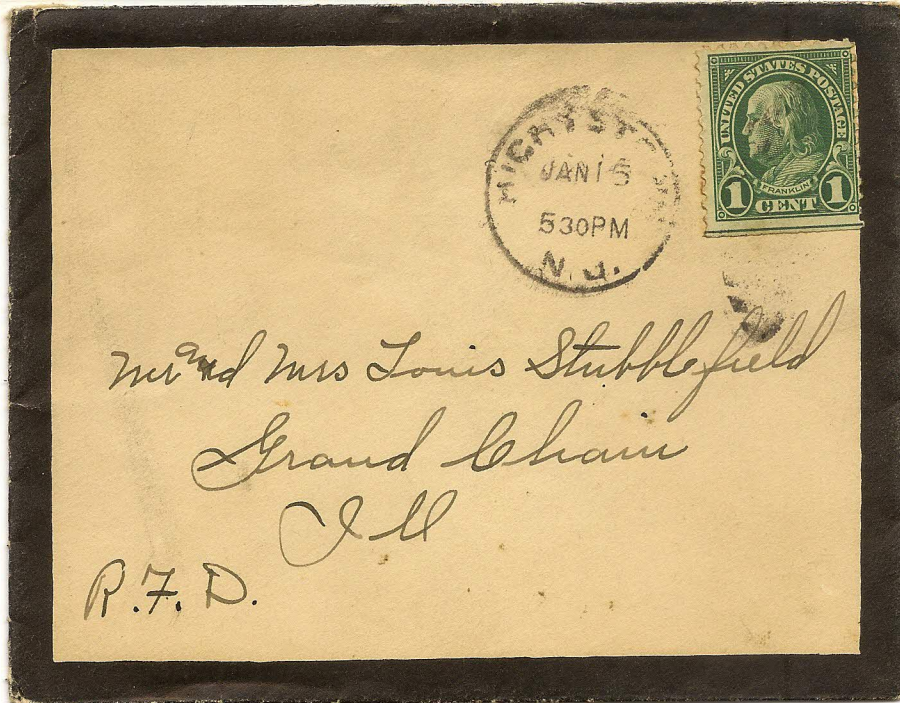 UNITED STATES POSTAGE
FRANKLIN
1 CENT 1
JAN 15
530PM
N.J.
Mr and Mrs Louis Stubblefield
Grand Chain
Ill
R.F.D.